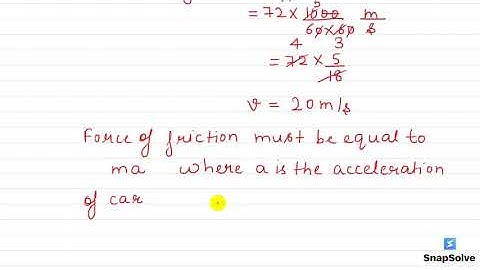 = 72 × 1000/60×60 m/s
4 3
= 72 × 5/18
v = 20 m/s
Force of friction must be equal to
ma where a is the acceleration
of car
SnapSolve